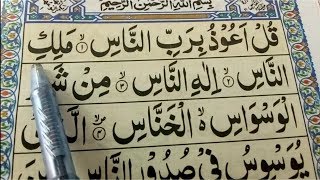 بِسْمِ اللّٰهِ الرَّحْمٰنِ الرَّحِیْمِ
قُلْ اَعُوْذُ بِرَبِّ النَّاسِ ﴿۱﴾ مَلِكِ
النَّاسِ ﴿۲﴾ اِلٰهِ النَّاسِ ﴿۳﴾ مِنْ شَرِّ
الْوَسْوَاسِ ەۙ الْخَنَّاسِ ﴿۴﴾
یُوَسْوِسُ فِیْ صُدُوْرِ النَّاسِ